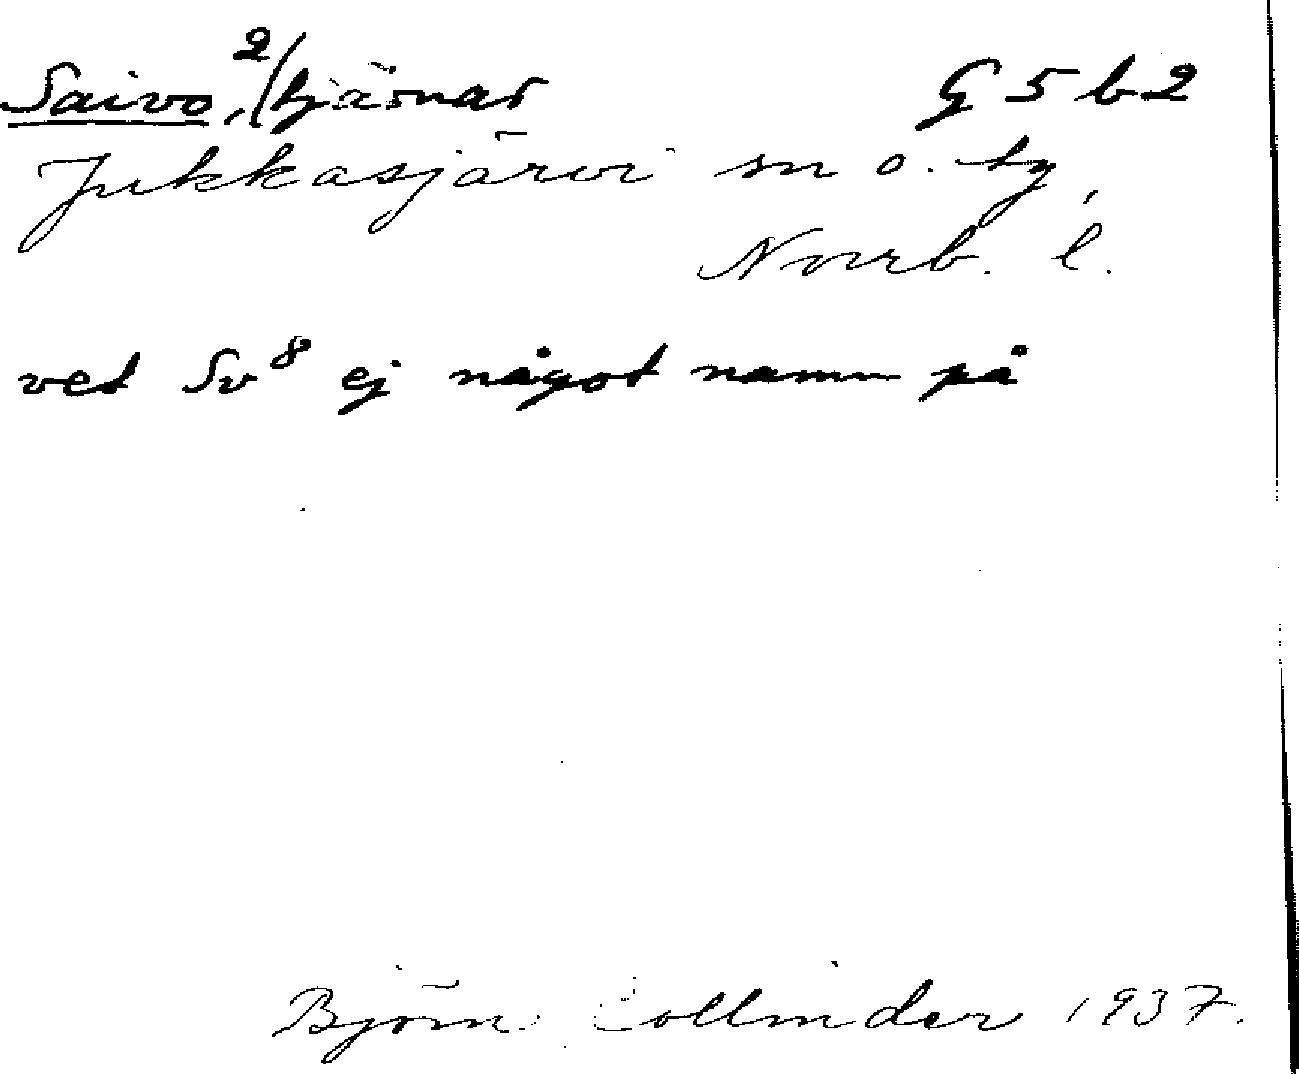 Saivo, 2/ tjärnar G 5 b 2
Jukkasjärvi sn o. tg,
Norrb. l.
vet Sv 8 ej något namn på
Björn Collinder 1937.